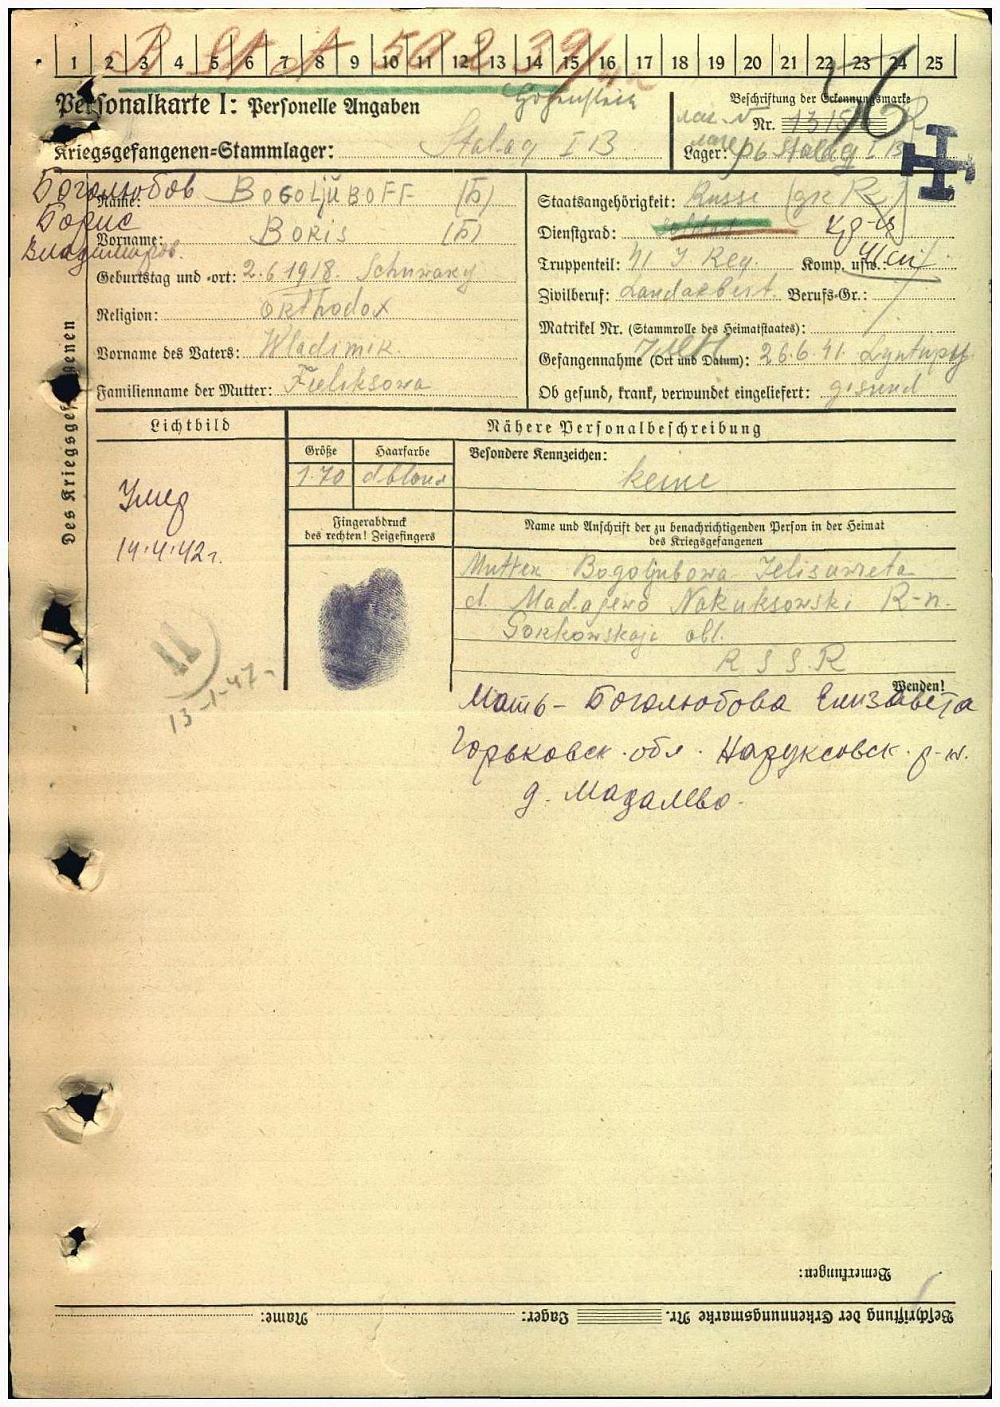 1 2 3 4 5 6 7 8 9 10 11 12 13 14 15 16 17 18 19 20 21 22 23 24 25
Personalkarte I: Personelle Angaben
Hohenstein
Kriegsgefangenen-Stammlager: Stalag I B
Beschriftung der Erkennungsmarke
Nr.
Lager: Stalag I B
Des Kriegsgefangenen
Боголюбов
Name: BOGOLJUBOFF (Б)
Борис
Vorname: BORIS (Б)
Владимиров.
Geburtstag und -ort: 2.6.1918.
Religion: Orthodox
Vorname des Vaters: Wladimir.
Familienname der Mutter: Feliksowa
Staatsangehörigkeit: Russe
Dienstgrad: Soldat
Truppenteil: 41 I Reg. Komp. usw.:
Zivilberuf: Landarbeit. Berufs-Gr.: /
Matrikel Nr. (Stammrolle des Heimatstaates): /
Gefangennahme (Ort und Datum): 26.6.41. Lyntupy
Ob gesund, krank, verwundet eingeliefert: gesund
Lichtbild
Умер
14.4.42г.
11
13-1-47-
Nähere Personalbeschreibung
Größe
1.70
Haarfarbe
dblond
Besondere Kennzeichen:
keine
Fingerabdruck
des rechten! Zeigefingers
Name und Anschrift der zu benachrichtigenden Person in der Heimat
des Kriegsgefangenen
Mutter Bogoljubowa Jelisaweta
d. Madajewo Naruksowski R-n.
Gorkowskaja obl.
R S S R
Wenden!
Мать - Боголюбова Елизавета
Горьковск. обл. Наруксовск. р-н.
д. Мадалево.
Bemerkungen:
Beschriftung der Erkennungsmarke Nr. Lager: Name: